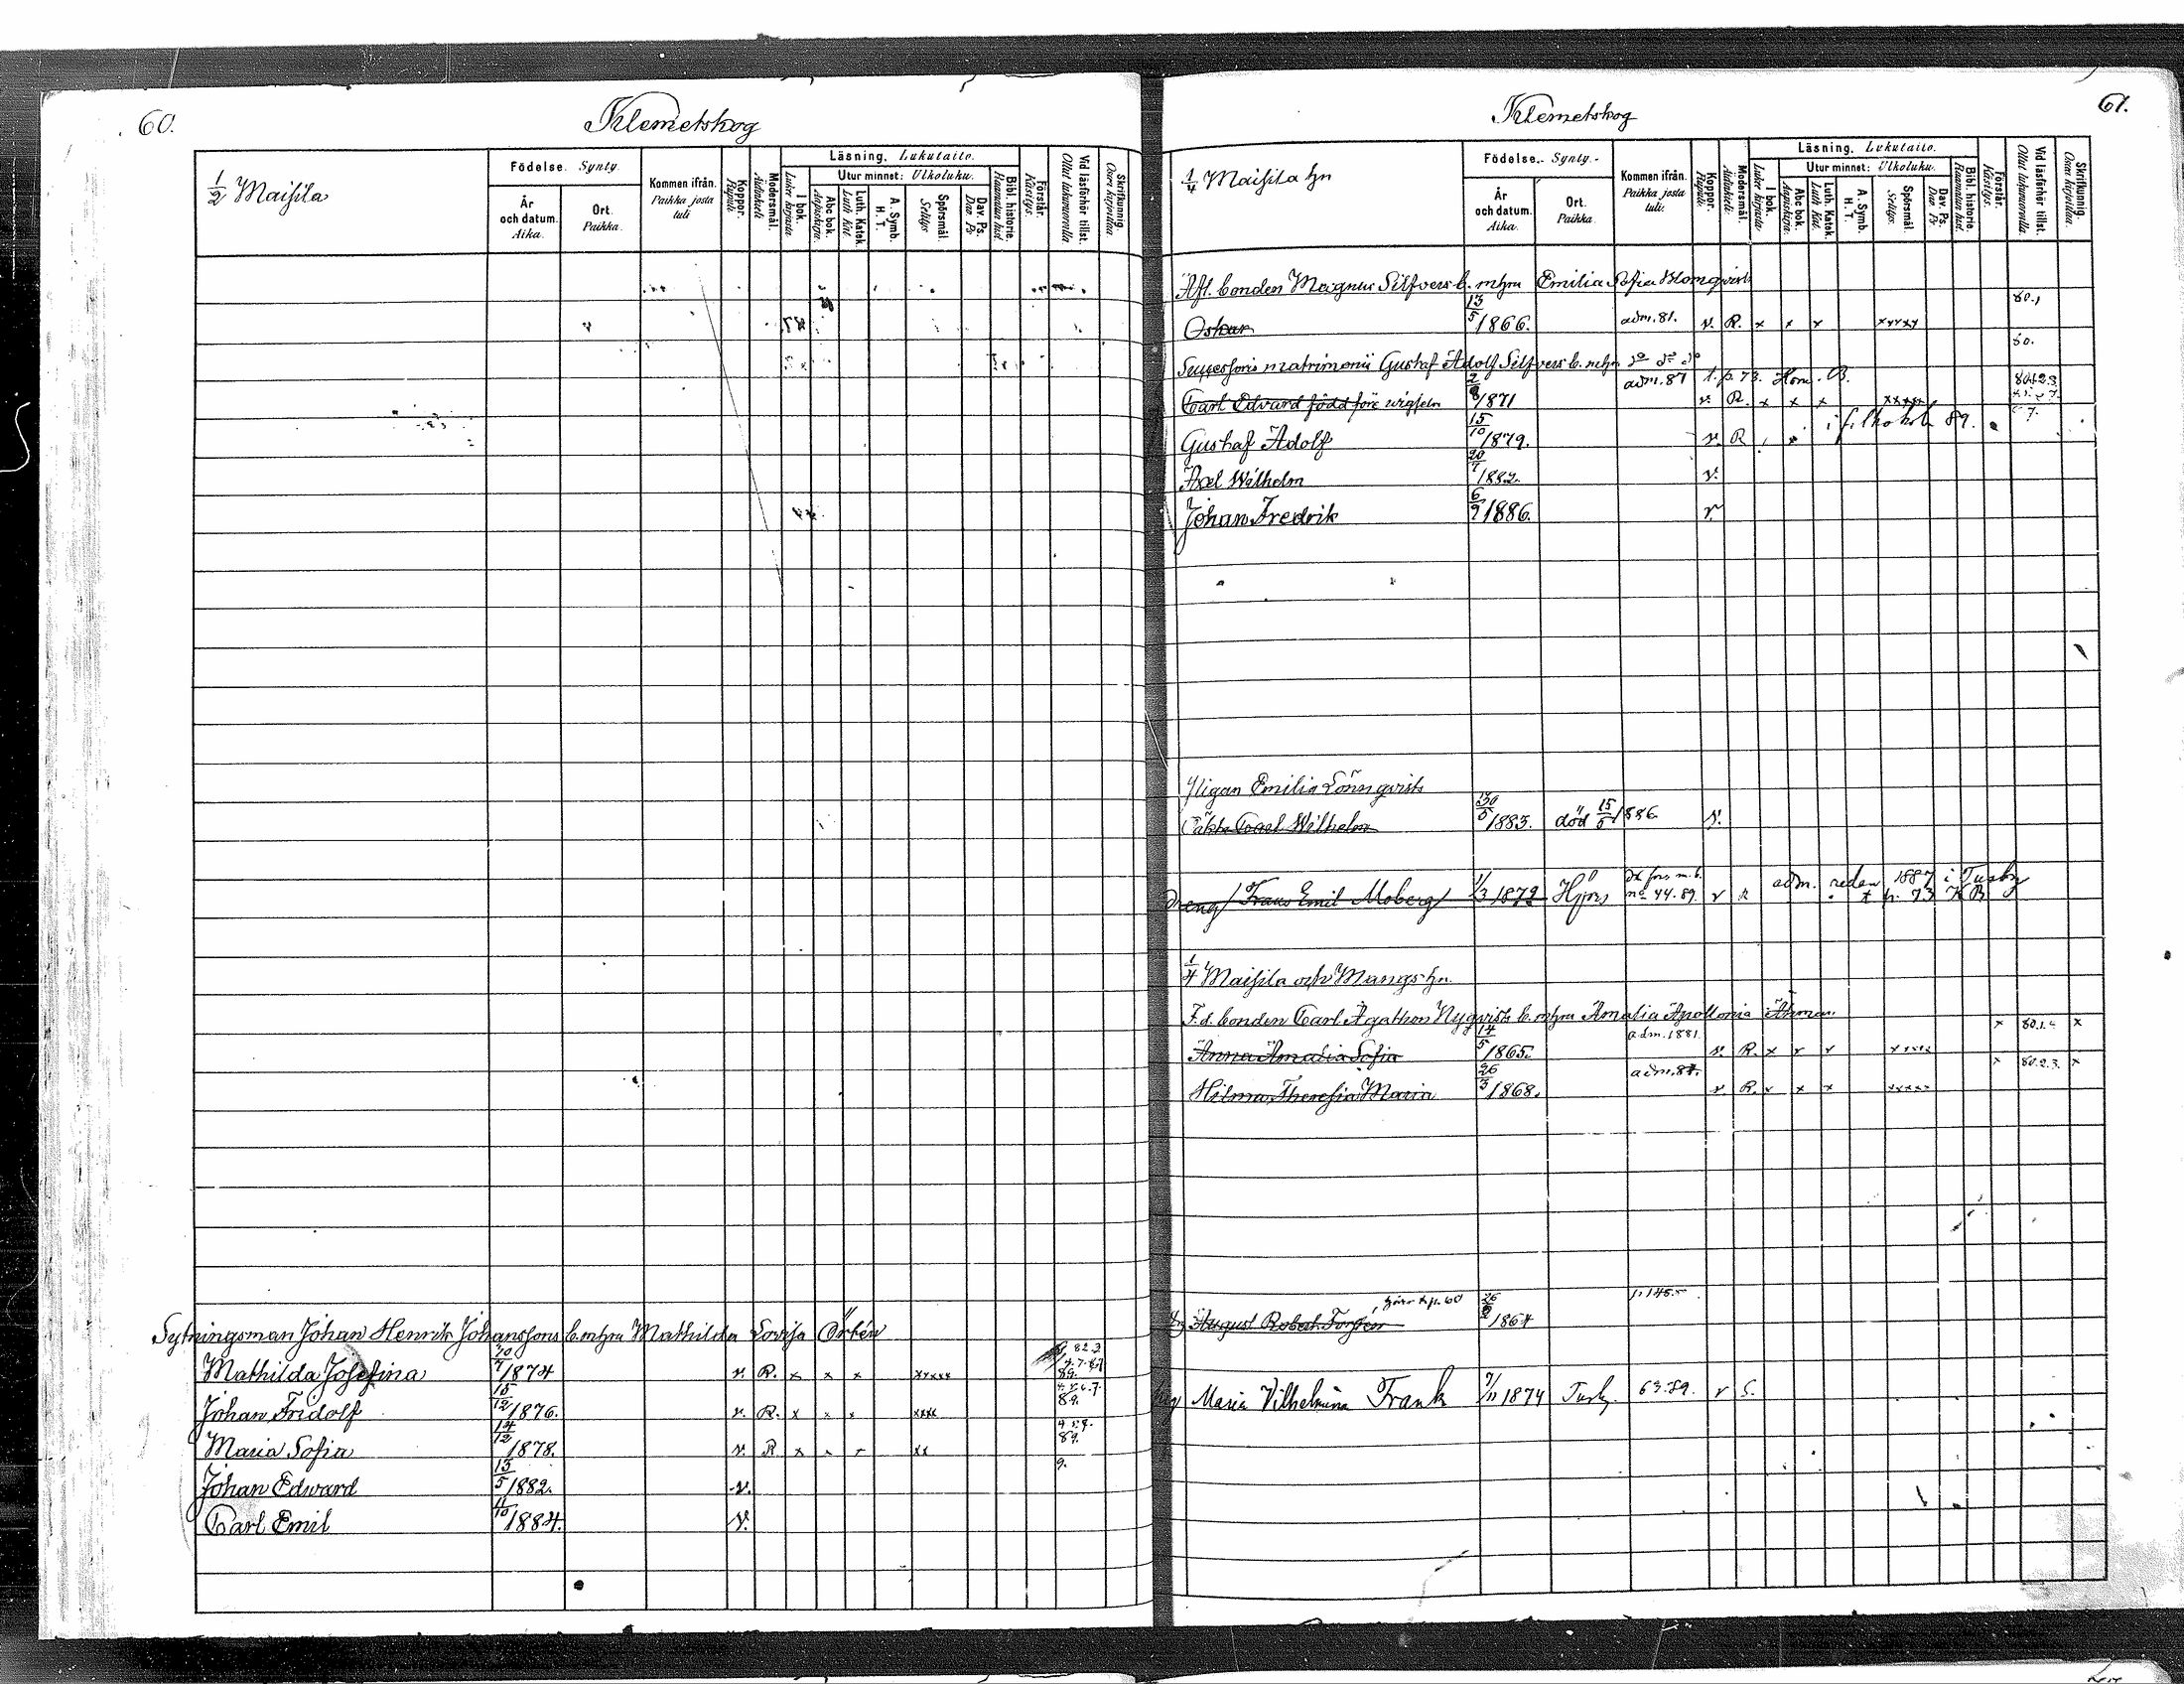 60.
Klemetskog
1/2 Maisila
Födelse. Synty.
År och datum. Aika.
Ort. Paikka.
Kommen ifrån. Paikka josta tuli
Koppor. Rupuli
Modersmål. Äidinkieli
Läsning. Lukutaito.
I bok. Lukee kirjasta
Utur minnet: Ulkoluku.
Abc bok. Aapiskirja.
Luth. Katek. Luth Kat
A. Symb. H. T.
Spörsmål. Selitys
Dav. Ps. Dav Ps
Bibl. historie. Raamatun hist.
Förstår. Käsitys.
Vid läsförhör tillst. Ollut lukuvuorolla
Skrifkunnig. Osaa kirjoittaa
Sytningsman Johan Henrik Johanssons b. m hru Mathilda Lovisa Örtén
Mathilda Josefina 10/7 1874 v. R. x x x xxxxx
Johan Fridolf 15/12 1876. v. R. x x x xxxx
Maria Sofia 14/12 1878. v. R x x xx
Johan Edward 13/5 1882. v.
Carl Emil 11/10 1884. v.
61.
Klemetskog
1/4 Maisila hn
Födelse. Synty.
År och datum. Aika.
Ort. Paikka.
Kommen ifrån. Paikka josta tuli.
Koppor. Rupuli.
Modersmål. Äidinkieli.
Läsning. Lukutaito.
I bok. Lukee kirjasta
Utur minnet: Ulkoluku.
Abc bok. Aapiskirja.
Luth. Katek. Luth Kat.
A. Symb. H. T.
Spörsmål. Selitys.
Dav. Ps. Dav Ps
Bibl. historie. Raamatun hist.
Förstår. Käsitys.
Vid läsförhör tillst. Ollut lukuvuorolla.
Skrifkunnig. Osaa kirjoittaa.
Afl. bonden Magnus Silfvers b. m hru Emilia Sofia Blomqvist
Oskar 13/5 1866. adm. 81. v. R. x x x xxxxx 80.1
Successoris matrimonii Gustaf Adolf Silfvers b. m hru do do do 80.
Carl Edvard född före vigseln 2/8 1871 adm. 87 t. p. 73. v. R. x x x xxxxx
Gustaf Adolf 15/10 1879. v. R i 89.
Axel Wilhelm 20/7 1882. v.
Johan Fredrik 6/9 1886. v
Pigan Emilia Lönnqvists
Carl Wilhelm 30/5 1883. död 15/5 1886 v.
Dreng Frans Emil Moberg 1/3 1872 Hfors no 44. 89. v R adm. redan 1887 i Tusby p. 73 KB
1/4 Maisila och Mangs hn.
F. d. bonden Carl Agathon Nyqvists b. m hru Amalia Apollonia Åhman.
Anna Amalia Sofia 14/5 1865. adm. 1881. v. R. x x x xxxxx x x
Hilma Theresia Maria 26/3 1868. adm. 87. v. R. x x x xxxxx x 80.2.3. x
August Robert Forsten 26/8 1864 p. 145
Maria Vilhelmina Frank 9/11 1874 Tusby 63. 89. v S.